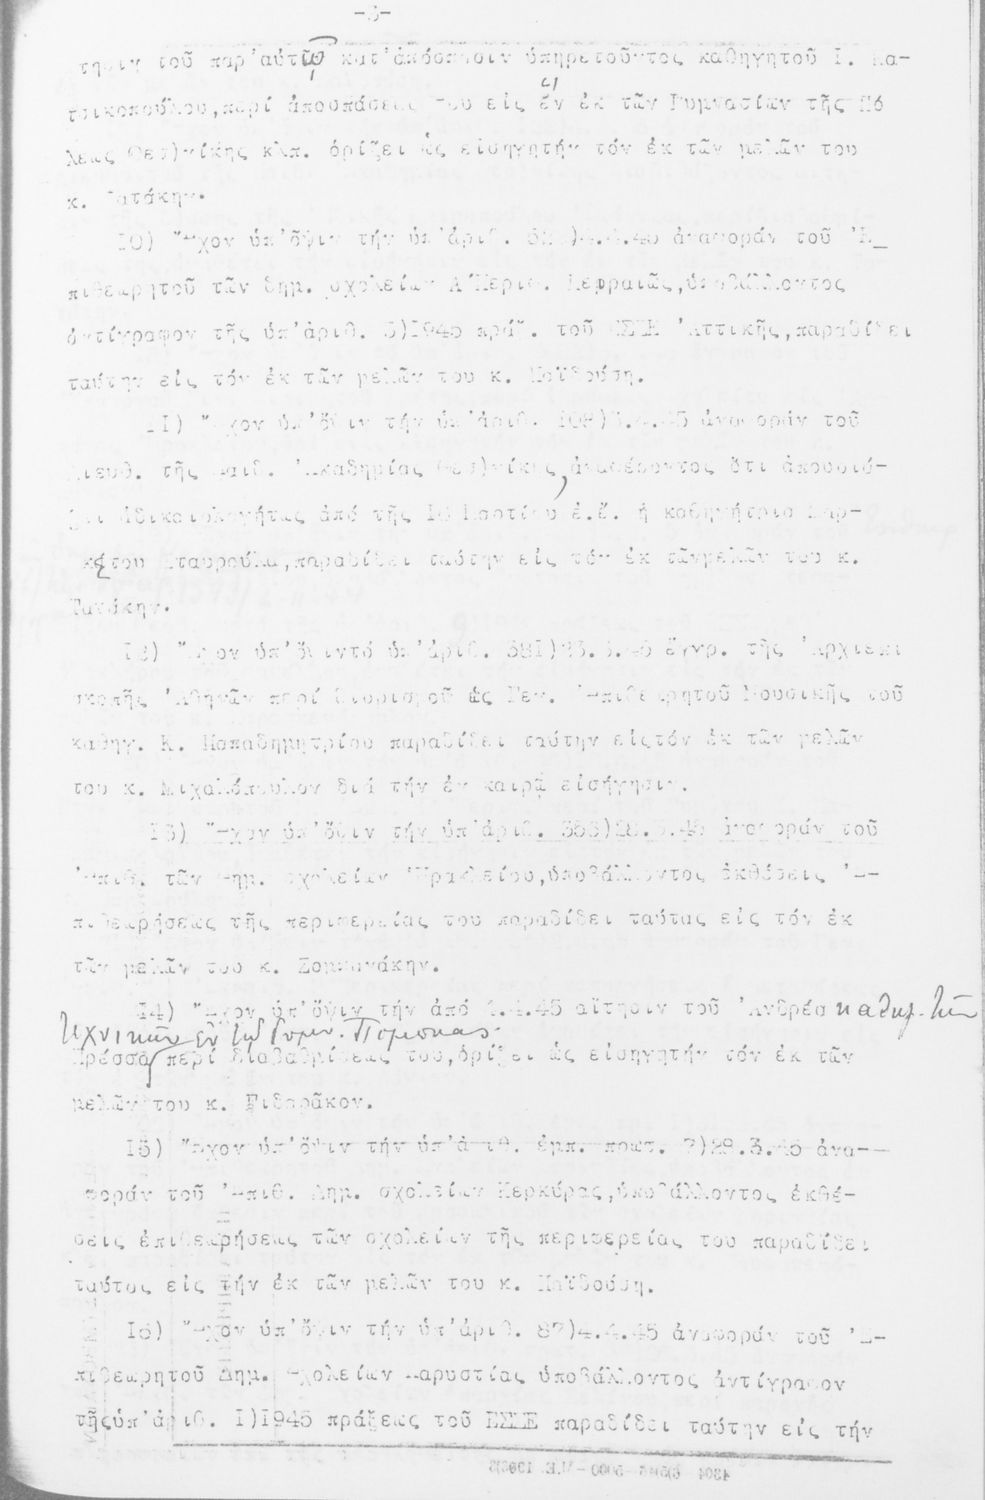 -3-
τησιν τοῦ παρ'αὐτῷ κατ'ἀπόσπασιν ὑπηρετοῦντος καθηγητοῦ Ι. Κα-
τσικοπούλου,περί ἀποσπάσεως του εἰς ἕν ἐκ τῶν Γυμνασίων τῆς Πό
λεως Θεσ)νίκης κλπ. ὁρίζει ὡς εἰσηγητήν τόν ἐκ τῶν μελῶν του
κ. Τατάκην.
10) Ἔχον ὑπ'ὄψιν τήν ὑπ'ἀριθ. )4.4.45 ἀναφοράν τοῦ Ἐ_
πιθεωρητοῦ τῶν δημ. σχολείων Α'Περιφ. Κεφραιῶς,ὑποβάλλοντος
ἀντίγραφον τῆς ὑπ'ἀριθ. 3)1945 πράξ. τοῦ ΕΣΣΕ Ἀττικῆς,παραδίδει
ταύτην εἰς τόν ἐκ τῶν μελῶν του κ. Καϊδούση.
11) Ἔχον ὑπ'ὄψιν τήν ὑπ'ἀριθ. 108)3.4.45 ἀναφοράν τοῦ
Διευθ. τῆς Παιδ. Ἀκαδημίας Θεσ)νίκης,ἀναφέροντος ὅτι ἀπουσιά-
ζει ἀδικαιολογήτως ἀπό τῆς 10 Μαρτίου ἐ.ἔ. ἡ καθηγήτρια Μαρ-
κάτου Σταυρούλα,παραδίδει ταύτην εἰς τόν ἐκ τῶνμελῶν του κ.
Τατάκην.
12) Ἔχον ὑπ'ὄψιντό ὑπ'ἀριθ. 381)23.3.45 ἔγγρ. τῆς Ἀρχιεπι
σκοπῆς Ἀθηνῶν περί διορισμοῦ ὡς Γεν. Ἐπιθεωρητοῦ Μουσικῆς τοῦ
καθηγ. Κ. Παπαδημητρίου παραδίδει ταύτην εἰςτόν ἐκ τῶν μελῶν
του κ. Μιχαλόπουλον διά τήν ἐν καιρῷ εἰσήγησιν.
13) Ἔχον ὑπ'ὄψιν τήν ὑπ'ἀριθ. 353)28.3.45 ἀναφοράν τοῦ
Ἐπιθ. τῶν Δημ. σχολείων Ἡρακλείου,ὑποβάλλοντος ἐκθέσεις Ἐ-
πιθεωρήσεως τῆς περιφερείας του παραδίδει ταύτας εἰς τόν ἐκ
τῶν μελῶν του κ. Ζομπανάκην.
14) Ἔχον ὑπ'ὄψιν τήν ἀπό 2.4.45 αἴτησιν τοῦ Ἀνδρέα καθηγ. τῶν
τεχνικῶν ἐν τῷ Γυμν.
Πρέσσα περί διαβαθμίσεώς του,ὁρίζει ὡς εἰσηγητήν τόν ἐκ τῶν
μελῶν του κ. Φιδαρᾶκον.
15) Ἔχον ὑπ'ὄψιν τήν ὑπ'ἀριθ. ἐμπ. πρωτ. 7)29.3.45 ἀνα--
φοράν τοῦ Ἐπιθ. Δημ. σχολείων Κερκύρας,ὑποβάλλοντος ἐκθέ-
σεις ἐπιθεωρήσεως τῶν σχολείων τῆς περιφερείας του παραδίδει
ταύτας εἰς τήν ἐκ τῶν μελῶν του κ. Καϊδούση.
16) Ἔχον ὑπ'ὄψιν τήν ὑπ'ἀριθ. 87)4.4.45 ἀναφοράν τοῦ Ἐ-
πιθεωρητοῦ Δημ. Σχολείων Καρυστίας ὑποβάλλοντος ἀντίγραφον
τῆςὑπ'ἀριθ. 1)1945 πράξεως τοῦ ΕΣΔΕ παραδίδει ταύτην εἰς τήν